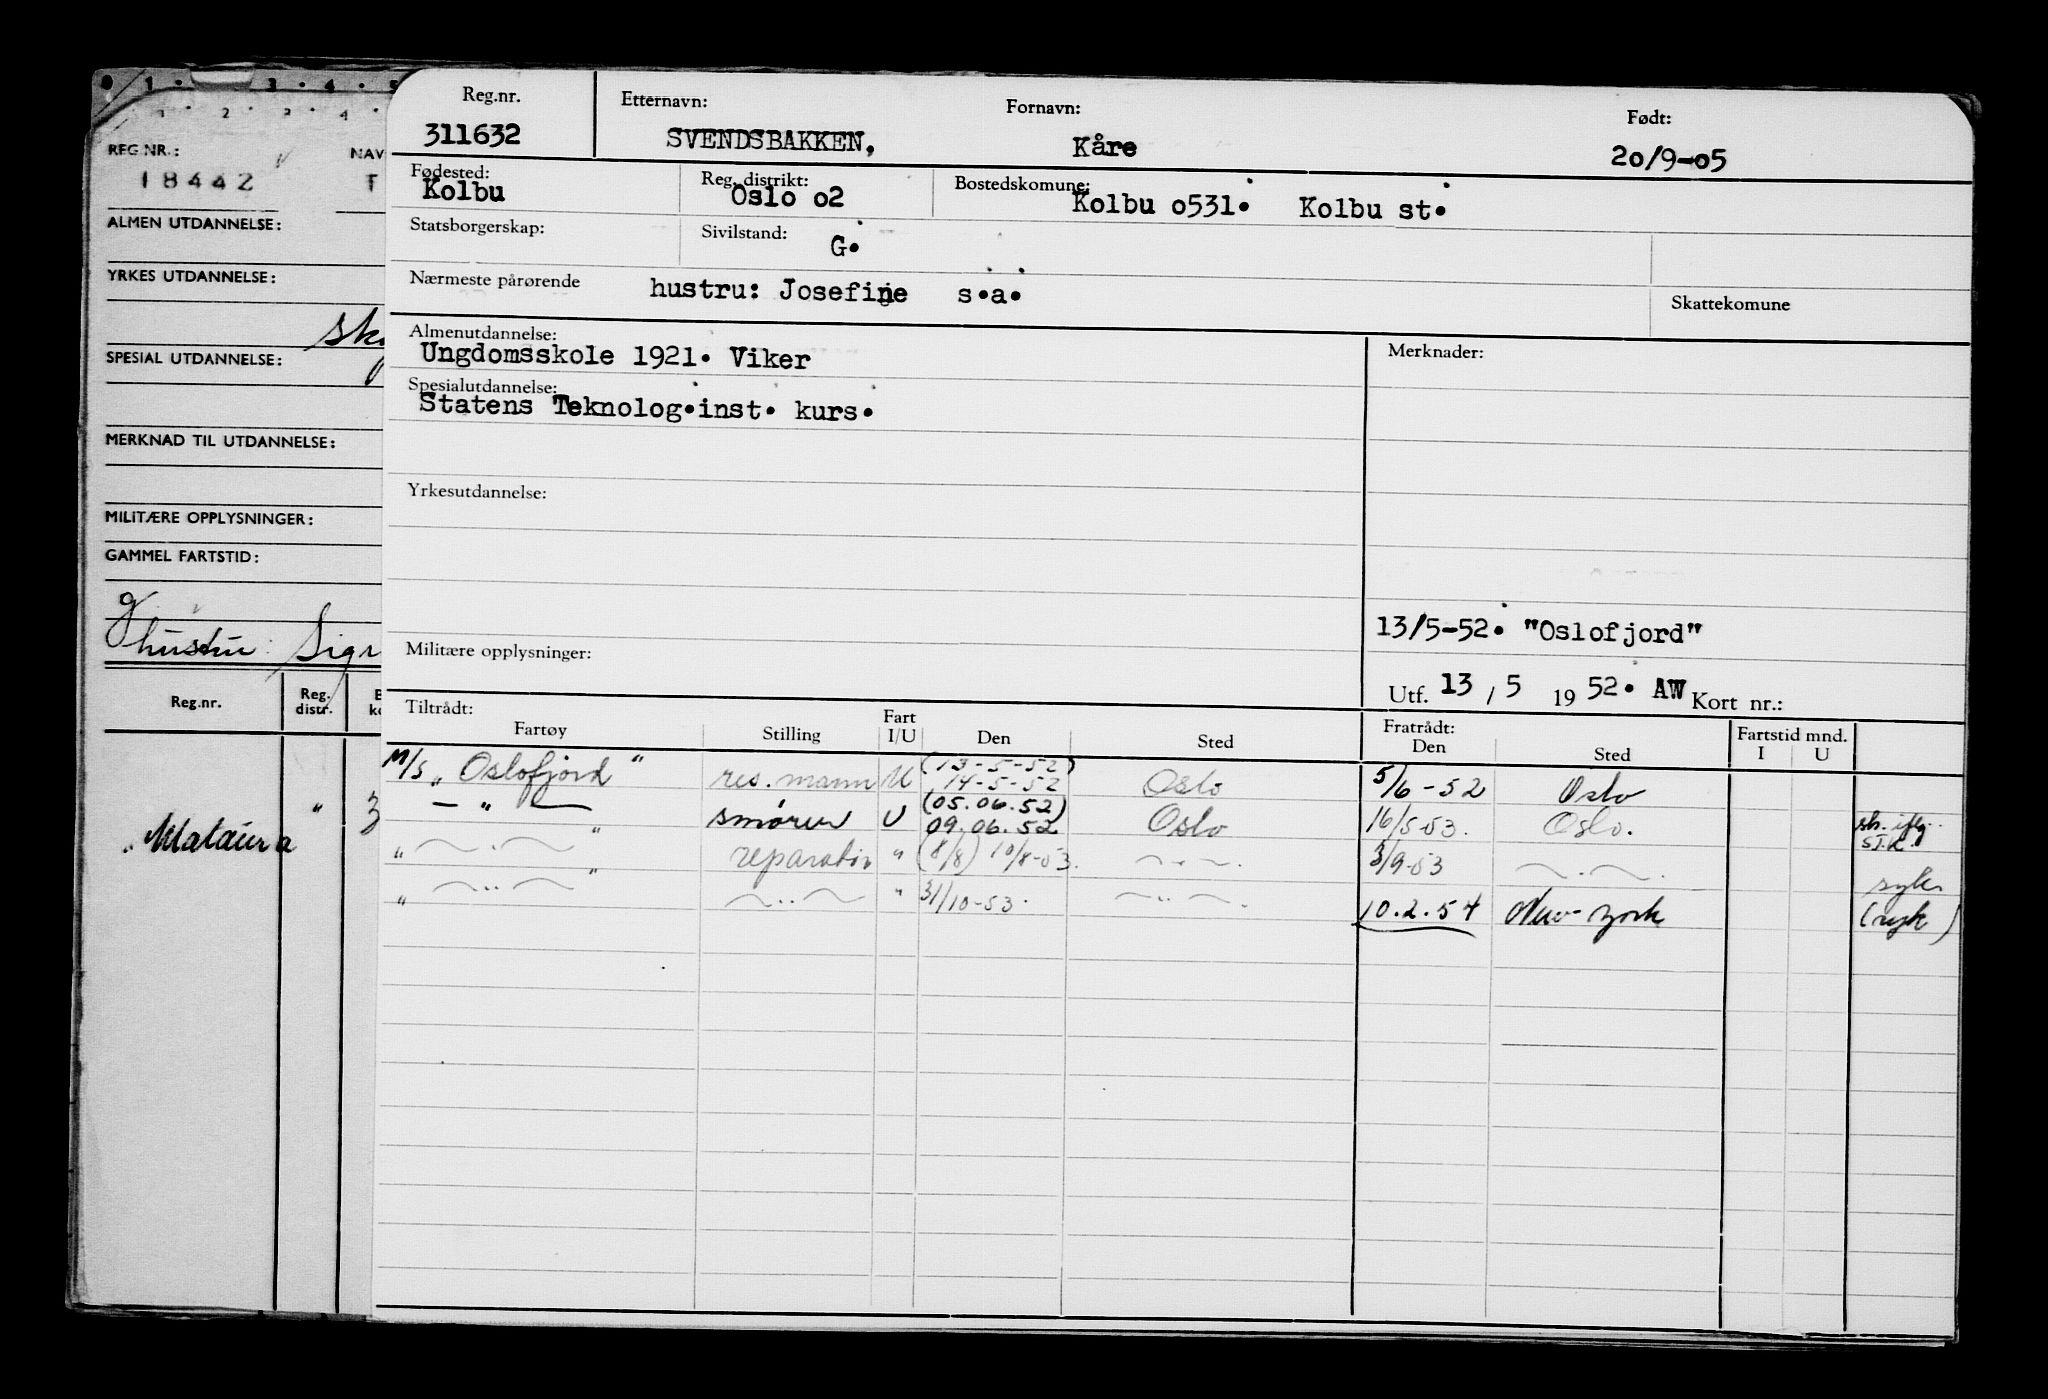 1 · 3 · 4 · 5
1 2 3 4
REG NR.: NAV
18442 T
ALMEN UTDANNELSE:
YRKES UTDANNELSE:
SPESIAL UTDANNELSE:
MERKNAD TIL UTDANNELSE:
MILITÆRE OPPLYSNINGER:
GAMMEL FARTSTID:
G
hustru: Sigr
Reg.nr. Reg. distr.
"Mataura " 3
Reg.nr. Etternavn: Fornavn: Født:
311632 SVENDSBAKKEN, Kåre 20/9-05
Fødested: Reg. distrikt: Bostedskomune:
Kolbu Oslo o2 Kolbu o531. Kolbu st.
Statsborgerskap: Sivilstand: G.
Nærmeste pårørende hustru: Josefine s.a. Skattekomune
Almenutdannelse: Merknader:
Ungdomsskole 1921. Viker
Spesialutdannelse:
Statens Teknolog.inst. kurs.
Yrkesutdannelse:
13/5-52. "Oslofjord"
Militære opplysninger:
Utf. 13 / 5 1952. AW Kort nr.:
Tiltrådt: Fart Fratrådt: Fartstid mnd.
Fartøy Stilling I/U Den Sted Den Sted I U
(13-5-52)
M/S "Oslofjord" res. mann U 14-5-52 Oslo 5/6-52 Oslo
(05.06.52)
— " — smører U 09.06.52 Oslo 16/5-53. Oslo. sk. iflg. S.T.K.
" — . — " reparatør " (8/8) 10/8-53. — " —. 3/9-53 — . —. syk
" — .. — " — .. — " 31/10-53. — " —. 10.2.54 New-York (syk)